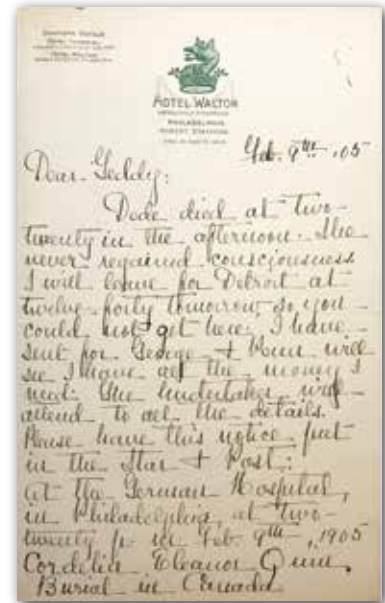 HOTEL WALTON
PHILADELPHIA
ROBERT STAFFORD
Feb. 9th, '05
Dear Teddy:
Dede died at two-
twenty in the afternoon. She
never regained consciousness
I will leave for Detroit at
twelve-forty tomorrow, so you
could not get here. I have
sent for George + will
see I have all the money I
need. The undertaker will
attend to all the details.
Please have this notice put
in the Star + Post:
At the German Hospital,
in Philadelphia, at two-
twenty p m Feb 9th, 1905
Cordelia Eleanor Quinn,
Burial in Canada